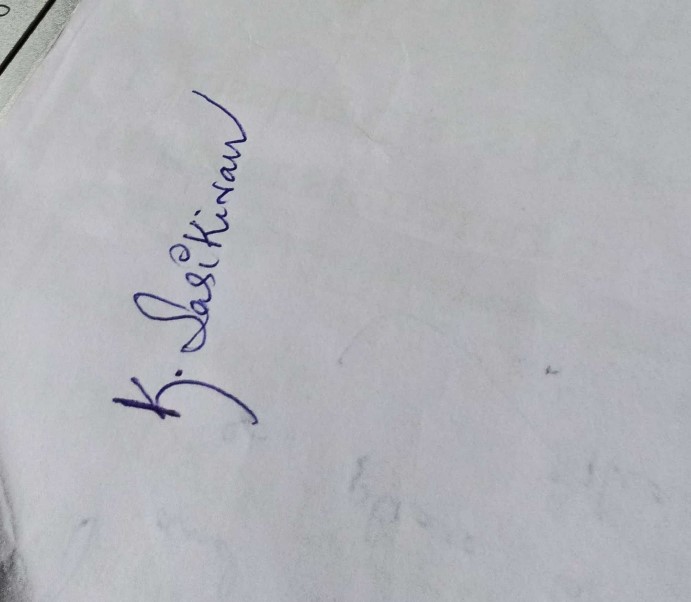 K. SasiKiran